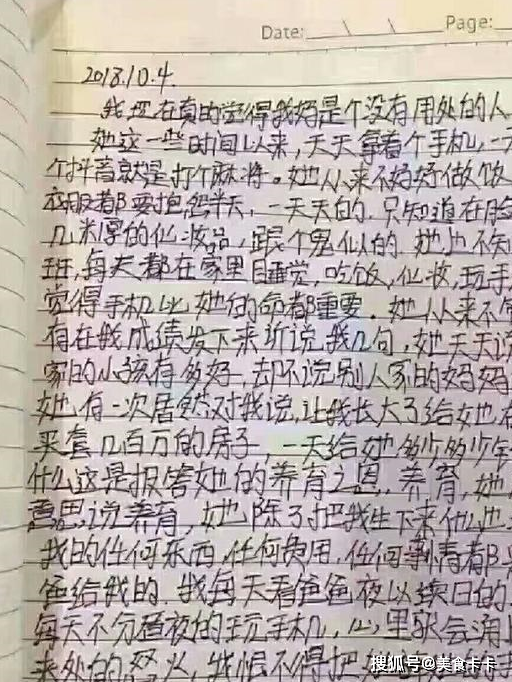 Date: Page:
2018.10.4.
我现在真的觉得我妈是个没有用处的人
她这一些时间以来，天天拿着个手机，一天
个抖音就是打个麻将。她从来不好好做饭
衣服都要抱怨半天，一天天的，只知道在脸
几米厚的化妆品，跟个鬼似的，她也不知
班，每天都在家里睡觉，吃饭，化妆，玩手
觉得手机比她的命都重要，她从来不
有在我成绩发下来听说我几句，她天天说
家的小孩有多好，却不说别人家的妈妈
她有一次居然对我说，让我长大了给她在
买套几百万的房子，一天给她多少多少
什么这是报答她的养育之恩，养育，她
意思说养育，她除了把我生下来他也
我的任何东西，任何费用，任何都
爸给我的，我每天看爸爸夜以续日的
每天不分昼夜的玩手机，心里就会涌
来处的怒火，我恨不得把
搜狐号@美食卡卡